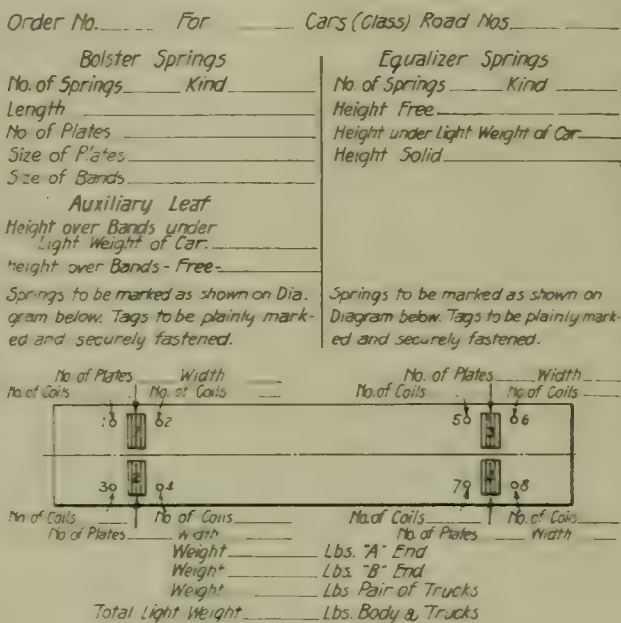 Order No. For Cars (Class) Road Nos.
Bolster Springs
No. of Springs Kind
Length
No of Plates
Size of Plates
Size of Bands
Auxiliary Leaf
Height over Bands under
Light Weight of Car.
Height over Bands - Free-
Springs to be marked as shown on Dia-
gram below. Tags to be plainly mark-
ed and securely fastened.
Equalizer Springs
No. of Springs Kind
Height Free
Height under Light Weight of Car
Height Solid
Springs to be marked as shown on
Diagram below. Tags to be plainly mark-
ed and securely fastened.
No of Plates Width No. of Plates Width
No. of Coils No. of Coils No. of Coils No of Coils
1 2 5 6
3 4 7 8
No of Coils No of Coils No. of Coils No. of Coils
No of Plates Width No. of Plates Width
Weight Lbs. "A" End
Weight Lbs. "B" End
Weight Lbs Pair of Trucks
Total Light Weight Lbs. Body & Trucks